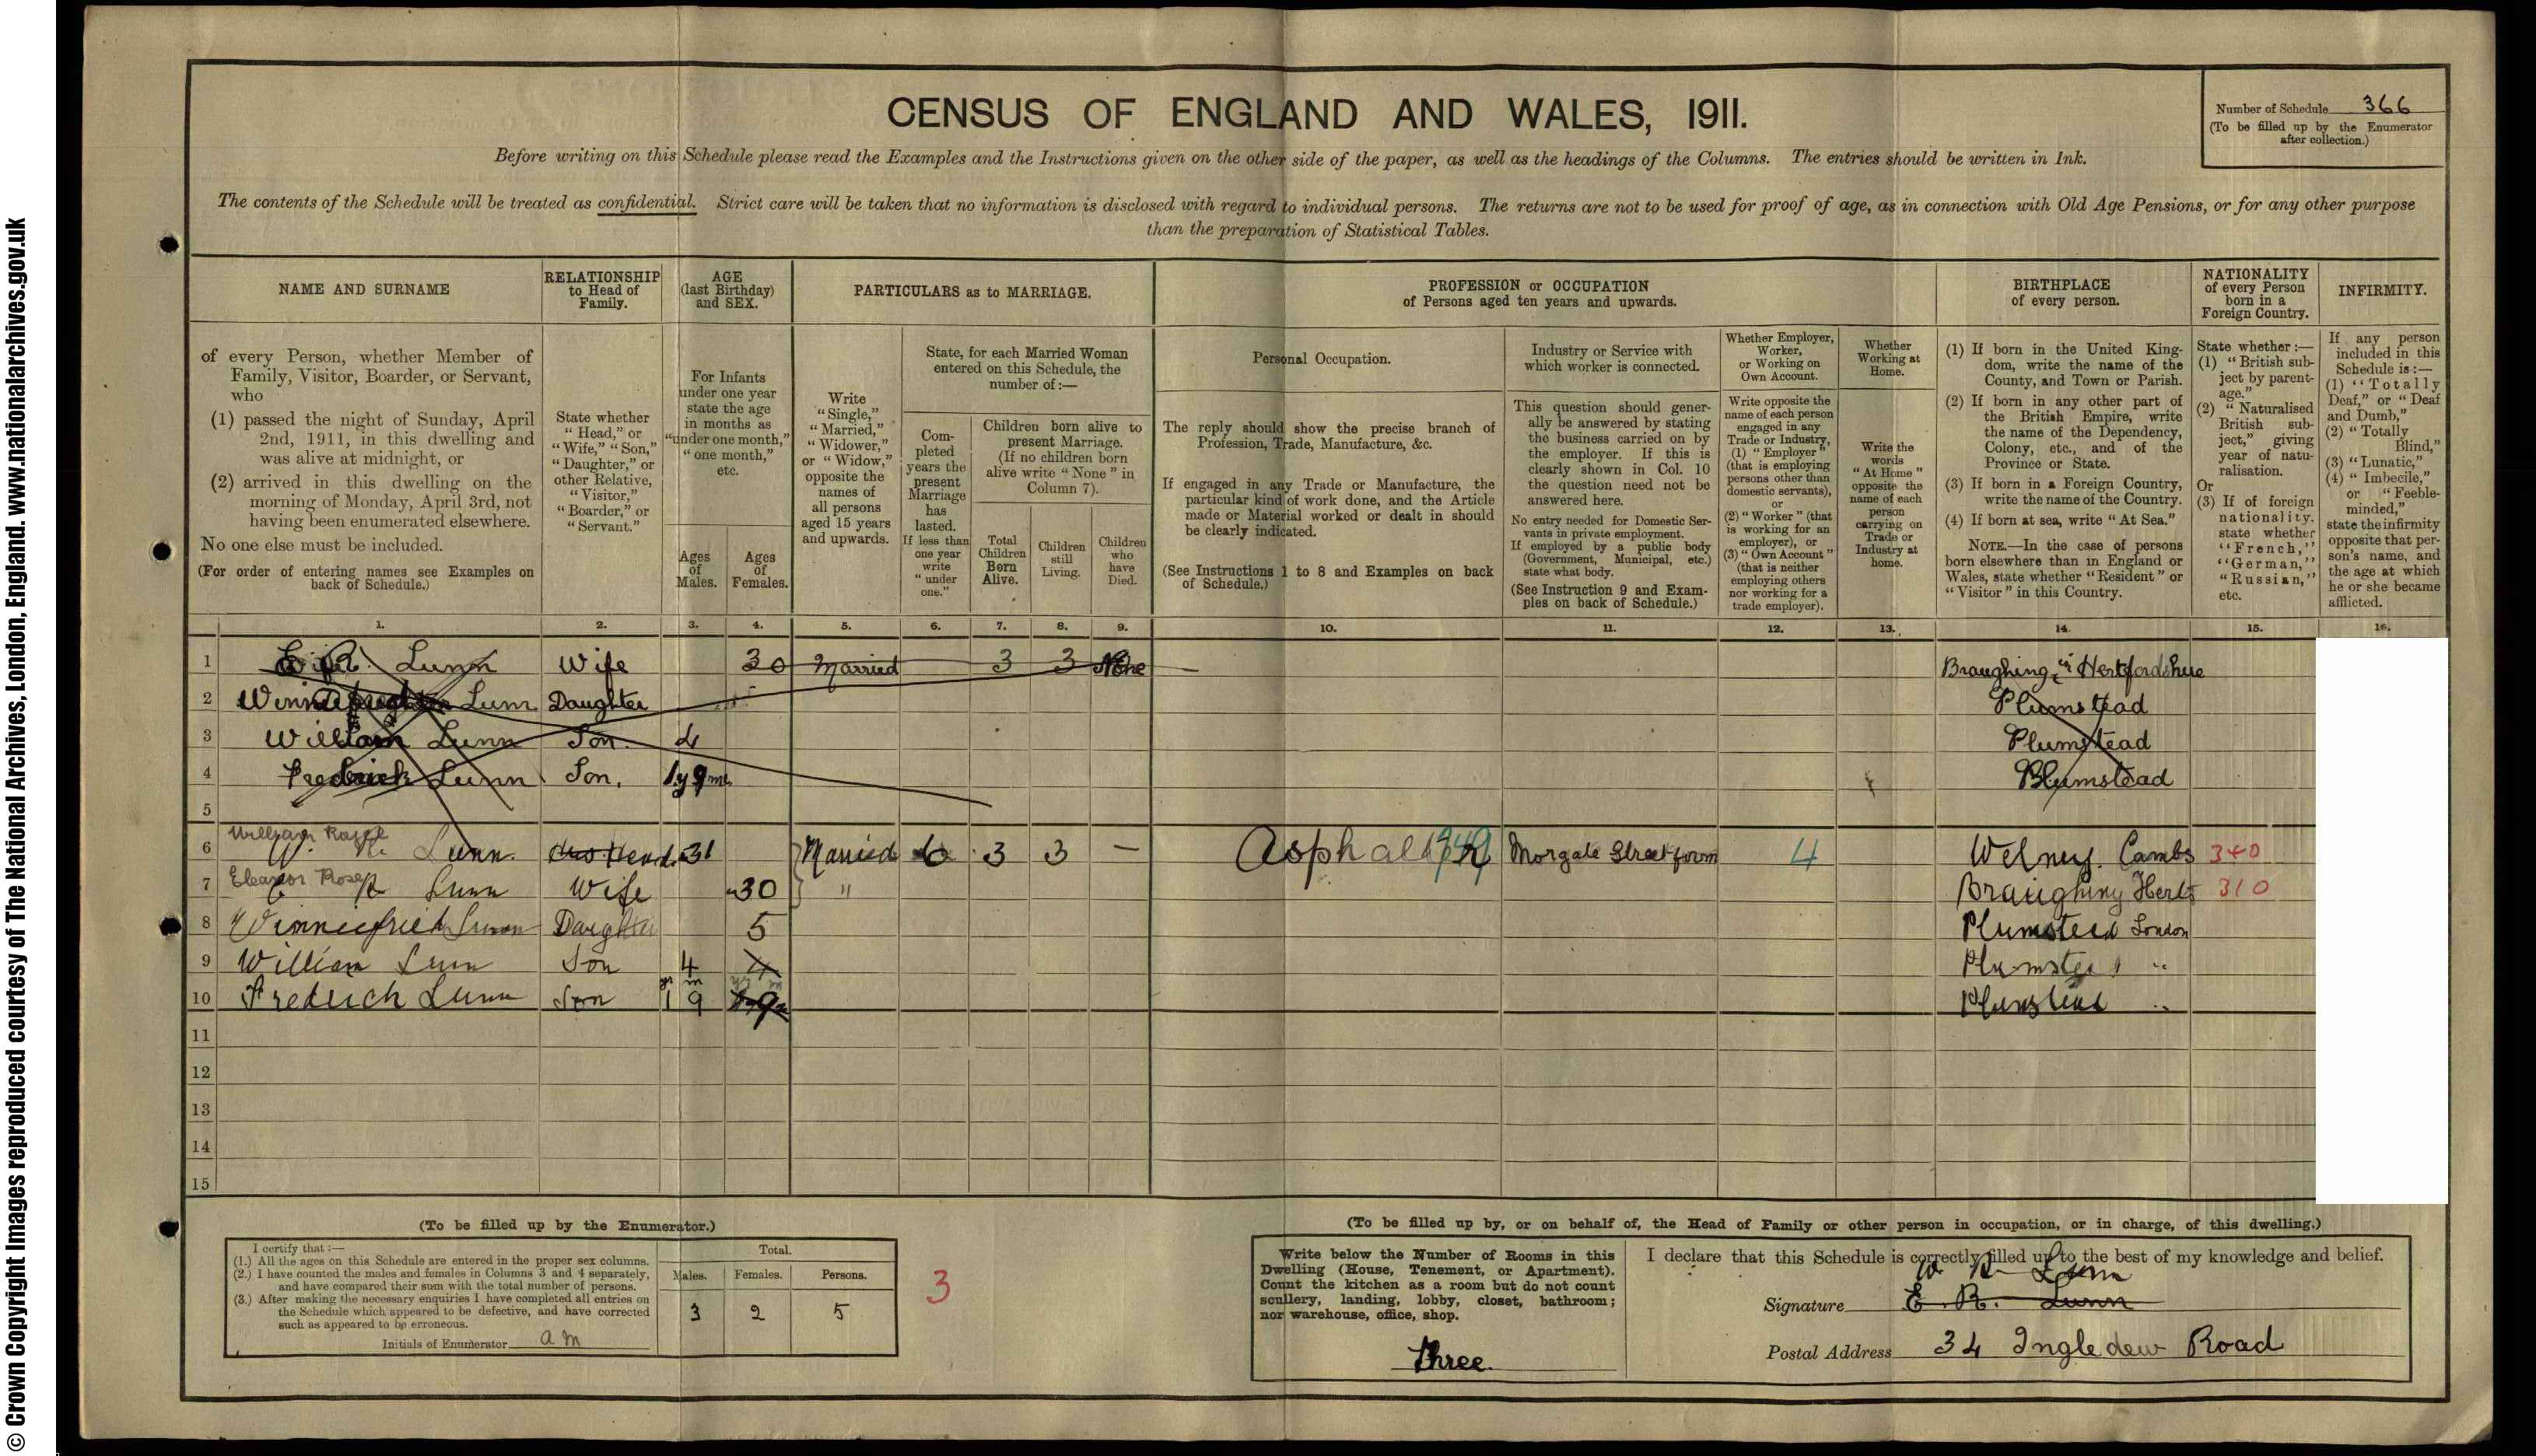 © Crown Copyright Images reproduced courtesy of The National Archives, London, England. www.nationalarchives.gov.uk
CENSUS OF ENGLAND AND WALES, 1911.
Number of Schedule 366
(To be filled up by the Enumerator
after collection.)
Before writing on this Schedule please read the Examples and the Instructions given on the other side of the paper, as well as the headings of the Columns. The entries should be written in Ink.
The contents of the Schedule will be treated as confidential. Strict care will be taken that no information is disclosed with regard to individual persons. The returns are not to be used for proof of age, as in connection with Old Age Pensions, or for any other purpose
than the preparation of Statistical Tables.
NAME AND SURNAME
of every Person, whether Member of
Family, Visitor, Boarder, or Servant,
who
(1) passed the night of Sunday, April
2nd, 1911, in this dwelling and
was alive at midnight, or
(2) arrived in this dwelling on the
morning of Monday, April 3rd, not
having been enumerated elsewhere.
No one else must be included.
(For order of entering names see Examples on
back of Schedule.)
RELATIONSHIP
to Head of
Family.
State whether
"Head," or
"Wife," "Son,"
"Daughter," or
other Relative,
"Visitor,"
"Boarder," or
"Servant."
AGE
(last Birthday)
and SEX.
For Infants
under one year
state the age
in months as
"under one month,"
"one month,"
etc.
Ages
of
Males.
Ages
of
Females.
PARTICULARS as to MARRIAGE.
Write
"Single,"
"Married,"
"Widower,"
or "Widow,"
opposite the
names of
all persons
aged 15 years
and upwards.
State, for each Married Woman
entered on this Schedule, the
number of:—
Com-
pleted
years the
present
Marriage
has
lasted.
If less than
one year
write
"under
one."
Children born alive to
present Marriage.
(If no children born
alive write "None" in
Column 7).
Total
Children
Born
Alive.
Children
still
Living.
Children
who
have
Died.
PROFESSION or OCCUPATION
of Persons aged ten years and upwards.
Personal Occupation.
The reply should show the precise branch of
Profession, Trade, Manufacture, &c.
If engaged in any Trade or Manufacture, the
particular kind of work done, and the Article
made or Material worked or dealt in should
be clearly indicated.
(See Instructions 1 to 8 and Examples on back
of Schedule.)
Industry or Service with
which worker is connected.
This question should gener-
ally be answered by stating
the business carried on by
the employer. If this is
clearly shown in Col. 10
the question need not be
answered here.
No entry needed for Domestic Ser-
vants in private employment.
If employed by a public body
(Government, Municipal, etc.)
state what body.
(See Instruction 9 and Exam-
ples on back of Schedule.)
Whether Employer,
Worker,
or Working on
Own Account.
Write opposite the
name of each person
engaged in any
Trade or Industry,
(1) "Employer"
(that is employing
persons other than
domestic servants),
or
(2) "Worker" (that
is working for an
employer), or
(3) "Own Account"
(that is neither
employing others
nor working for a
trade employer).
Whether
Working at
Home.
Write the
words
"At Home"
opposite the
name of each
person
carrying on
Trade or
Industry at
home.
BIRTHPLACE
of every person.
(1) If born in the United King-
dom, write the name of the
County, and Town or Parish.
(2) If born in any other part of
the British Empire, write
the name of the Dependency,
Colony, etc., and of the
Province or State.
(3) If born in a Foreign Country,
write the name of the Country.
(4) If born at sea, write "At Sea."
NOTE.—In the case of persons
born elsewhere than in England or
Wales, state whether "Resident" or
"Visitor" in this Country.
NATIONALITY
of every Person
born in a
Foreign Country.
State whether:—
(1) "British sub-
ject by parent-
age."
(2) "Naturalised
British sub-
ject," giving
year of natu-
ralisation.
Or
(3) If of foreign
nationality,
state whether
"French,"
"German,"
"Russian,"
etc.
INFIRMITY.
If any person
included in this
Schedule is:—
(1) "Totally
Deaf," or "Deaf
and Dumb,"
(2) "Totally
Blind,"
(3) "Lunatic,"
(4) "Imbecile,"
or "Feeble-
minded,"
state the infirmity
opposite that per-
son's name, and
the age at which
he or she became
afflicted.
1. 2. 3. 4. 5. 6. 7. 8. 9. 10. 11. 12. 13. 14. 15. 16.
1 E. R. Lunn Wife 30 Married 3 3 None — Braughing in Hertfordshire
2 Lunn Daughter Plumstead
3 William Lunn Son 4 Plumstead
4 Frederick Lunn Son, 1y 9m Plumstead
5
William
6 W. R. Lunn. Head 31 Married 6 3 3 — Asphalt Street 4 Welney. Cambs 340
Eleanor Rose
7 E R Lunn Wife 30 " Braughing Herts 310
8 Winniefried Lunn Daughter 5 Plumstead London
9 William Lunn Son 4 4 Plumstead "
yr m
10 Fredrich Lunn Son 1 9 Plumstead "
11
12
13
14
15
(To be filled up by the Enumerator.)
I certify that:—
(1.) All the ages on this Schedule are entered in the proper sex columns.
(2.) I have counted the males and females in Columns 3 and 4 separately,
and have compared their sum with the total number of persons.
(3.) After making the necessary enquiries I have completed all entries on
the Schedule which appeared to be defective, and have corrected
such as appeared to be erroneous.
Initials of Enumerator a m
Total.
Males. Females. Persons.
3 2 5
3
(To be filled up by, or on behalf of, the Head of Family or other person in occupation, or in charge, of this dwelling.)
Write below the Number of Rooms in this
Dwelling (House, Tenement, or Apartment).
Count the kitchen as a room but do not count
scullery, landing, lobby, closet, bathroom;
nor warehouse, office, shop.
Three
I declare that this Schedule is correctly filled up to the best of my knowledge and belief.
W R Lunn
Signature E. R. Lunn
Postal Address 34 Ingledew Road